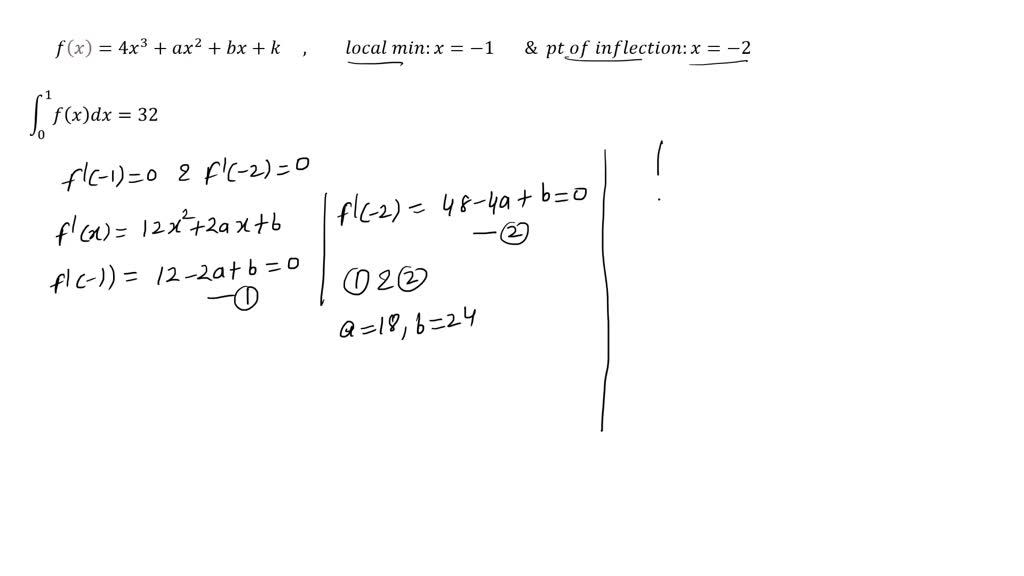 f(x) = 4x³ + ax² + bx + k , local min: x = −1 & pt of inflection: x = −2
∫₀¹ f(x)dx = 32
f'(-1)=0 & f'(-2)=0
f'(x) = 12x²+2ax+b
f'(-1)) = 12-2a+b=0
—①
f'(-2) = 48-4a+b=0
—②
① & ②
a=18, b=24